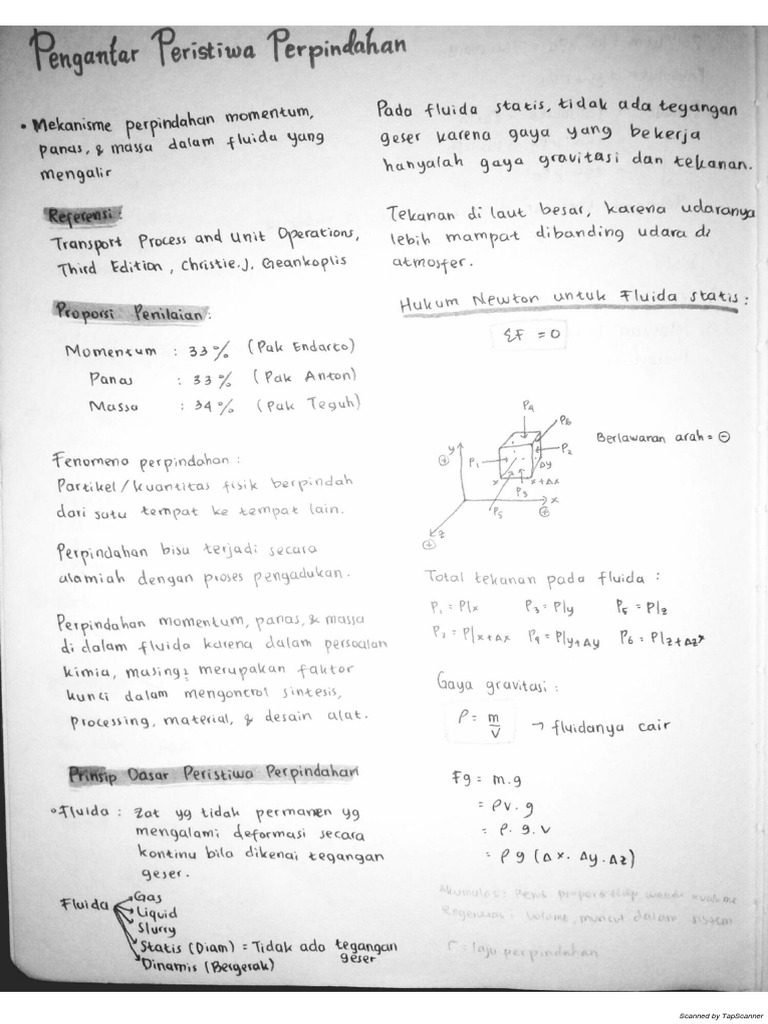 Pengantar Peristiwa Perpindahan
• Mekanisme perpindahan momentum,
panas, & massa dalam fluida yang
mengalir
Referensi:
Transport Process and Unit Operations,
Third Edition, Christie.J. Geankoplis
Proporsi Penilaian:
Momentum : 33% (Pak Endarto)
Panas : 33% (Pak Anton)
Massa : 34% (Pak Teguh)
Fenomena perpindahan :
Partikel/kuantitas fisik berpindah
dari satu tempat ke tempat lain.
Perpindahan bisa terjadi secara
alamiah dengan proses pengadukan.
Perpindahan momentum, panas, & massa
di dalam fluida karena dalam persoalan
kimia, masing2 merupakan faktor
kunci dalam mengoncrol sintesis,
processing, material, & desain alat.
Prinsip Dasar Peristiwa Perpindahan
• Fluida : Zat yg tidak permanen yg
mengalami deformasi secara
kontinu bila dikenai tegangan
geser.
Fluida
Gas
Liquid
Slurry
Statis (Diam) = Tidak ada tegangan
geser
Dinamis (Bergerak)
Pada fluida statis, tidak ada tegangan
geser karena gaya yang bekerja
hanyalah gaya gravitasi dan tekanan.
Tekanan di laut besar, karena udaranya
lebih mampat dibanding udara di
atmosfer.
Hukum Newton untuk Fluida statis :
ΣF = 0
P4
P6
y
P1
P2
Berlawanan arah = ⊖
⊕
Δy
x
x+Δx
P3
x
P5
⊕
z
⊕
Total tekanan pada fluida :
P1 = P|x P3 = P|y P5 = P|z
P2 = P|x+Δx P4 = P|y+Δy P6 = P|z+Δz
Gaya gravitasi :
ρ = m/V → fluidanya cair
Fg = m.g
= ρv. g
= ρ. g. v
= ρ g (Δx. Δy. Δz)
volume, muncul dalam sistem
r = laju perpindahan
Scanned by TapScanner